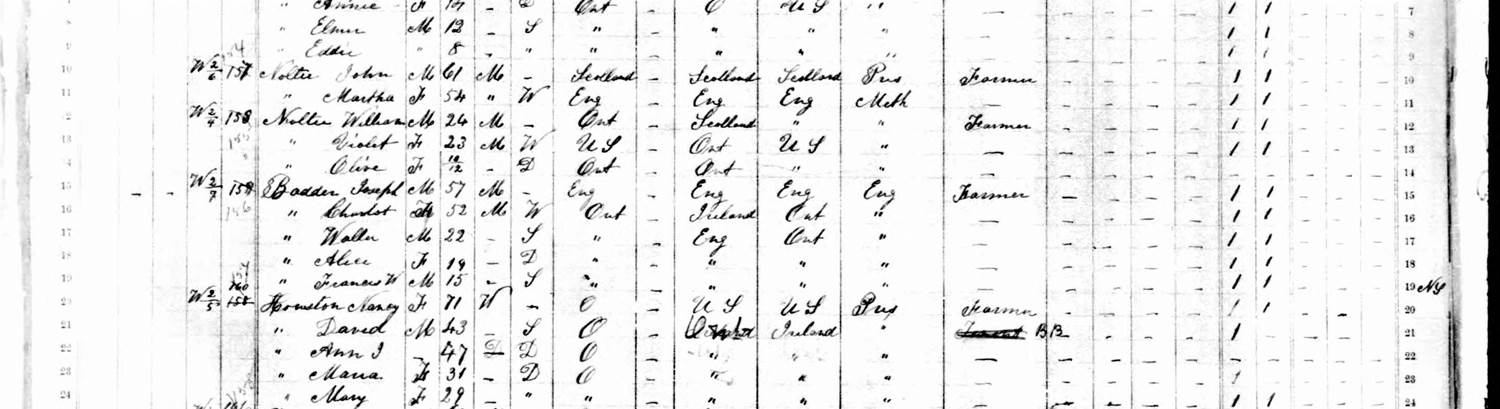 " Annie F 14 - D Ont - O U S " — 1 1 7
" Elmer M 12 - S " - " " " — 1 1 8
" Eddie " 8 - " " - " " " — 1 1 9
10 W 2/6 157 Noltie John M 61 M - Scotland - Scotland Scotland Pres Farmer 1 1 10
11 " Martha F 54 " W Eng - Eng Eng Meth — 1 1 11
12 W 2/4 158 Noltie William M 24 M - Ont - Scotland " " Farmer 1 1 12
13 " Violet F 23 M W U S - Ont U S " — 1 1 13
" Olive F 10/12 - D Ont - Ont " " — 14
15 W 2/7 Badder Joseph M 57 M - Eng - Eng Eng Eng Farmer 1 1 15
16 156 " Charlot F 52 M W Ont - Ireland Ont " — 1 1 16
17 " Walter M 22 - S " - Eng Ont " — 1 1 17
18 " Alice F 19 - D " - " " " — 1 1 18
19 " Francis W M 15 - S " - " " " — 1 1 19 NS
20 W 2/5 158 Houston Nancy F 71 W - O - U S U S Pres Farmer 1 1 20
21 " David M 43 - S O - Ireland " B B 1 21
22 " Ann J - 47 D D O - " " " — 22
23 " Maria F 31 - D O - " " " — 1 23
24 " Mary F 29 - " " - " " " — 1 1 24